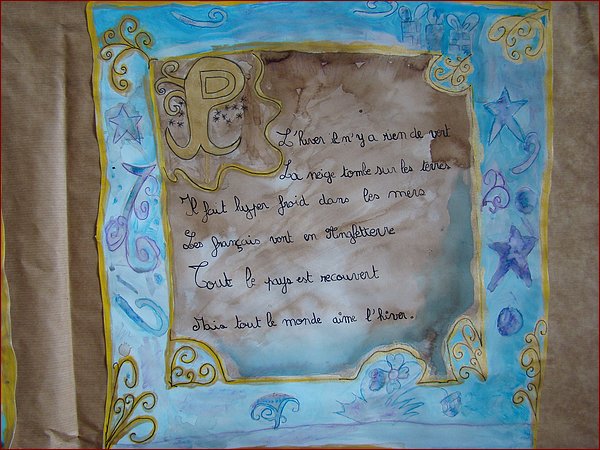 P
L'hiver il n'y a rien de vert
La neige tombe sur les terres
Il fait hyper froid dans les mers
Les français vont en Angleterre
Tout le pays est recouvert
Mais tout le monde aime l'hiver.